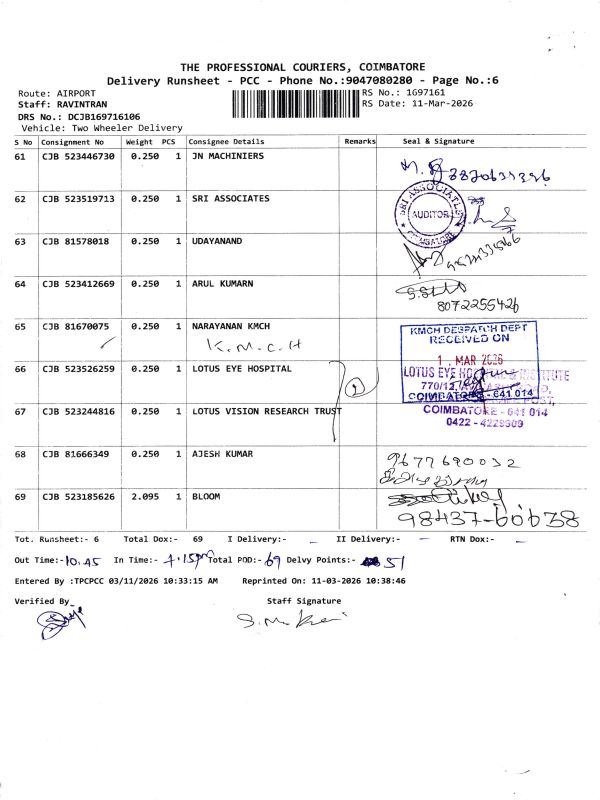 THE PROFESSIONAL COURIERS, COIMBATORE
Delivery Runsheet - PCC - Phone No.:9047080280 - Page No.:6
Route: AIRPORT
RS No.: 1697161
Staff: RAVINTRAN
RS Date: 11-Mar-2026
DRS No.: DCJB169716106
Vehicle: Two Wheeler Delivery
S No Consignment No Weight PCS Consignee Details Remarks Seal & Signature
61 CJB 523446730 0.250 1 JN MACHINIERS
62 CJB 523519713 0.250 1 SRI ASSOCIATES
SRI ASSOCIATES
AUDITOR
COIMBATORE
63 CJB 81578018 0.250 1 UDAYANAND
64 CJB 523412669 0.250 1 ARUL KUMARN
8072255426
65 CJB 81670075 0.250 1 NARAYANAN KMCH
K.M.C.H
KMCH DESPATCH DEPT
RECEIVED ON
1 MAR 2026
66 CJB 523526259 0.250 1 LOTUS EYE HOSPITAL
2
LOTUS EYE HOSPITAL & INSTITUTE
770/12,
COIMBATORE - 641 014
67 CJB 523244816 0.250 1 LOTUS VISION RESEARCH TRUST
COIMBATORE - 641 014
0422 - 4229909
68 CJB 81666349 0.250 1 AJESH KUMAR
9677690032
69 CJB 523185626 2.095 1 BLOOM
98437-60638
Tot. Runsheet:- 6 Total Dox:- 69 I Delivery:- – II Delivery:- – RTN Dox:- –
Out Time:-10.45 In Time:- 4.15pm Total POD:- 69 Delvy Points:- 51
Entered By :TPCPCC 03/11/2026 10:33:15 AM Reprinted On: 11-03-2026 10:38:46
Verified By_
Staff Signature